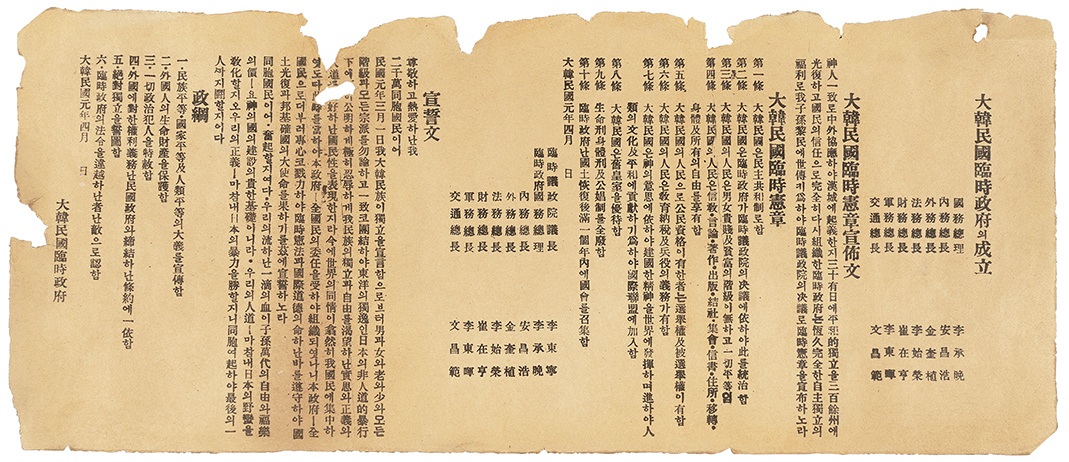 大韓民國臨時政府의成立
國務總理 李承晩
內務總長 安昌浩
外務總長 金奎植
法務總長 李始榮
財務總長 崔在亨
軍務總長 李東暉
交通總長 文昌範
大韓民國臨時憲章宣佈文
神人一致로中外協應하야漢城에起義한지三十有日에平和的獨立을三百餘州에
光復하고國民의信任으로完全히다시組織한臨時政府는恒久完全한自主獨立의
福利로我子孫黎民에世傳키爲하야臨時議政院의决議로臨時憲章을宣布하노라
大韓民國臨時憲章
第一條 大韓民國은民主共和制로함
第二條 大韓民國은臨時政府가臨時議政院의决議에依하야此를統治함
第三條 大韓民國의人民은男女貴賤及貧富의階級이無하고一切平等임
第四條 大韓民國의人民은信敎·言論·著作·出版·結社·集會·信書·住所·移轉·
身體及所有의自由를享有함
第五條 大韓民國의人民으로公民資格이有한者는選擧權及被選擧權이有함
第六條 大韓民國의人民은敎育納稅及兵役의義務가有함
第七條 大韓民國은神의意思에依하야建國한精神을世界에發揮하며進하야人
類의文化及平和에貢獻하기爲하야國際聯盟에加入함
第八條 大韓民國은舊皇室을優待함
第九條 生命刑身體刑及公娼制를全廢함
第十條 臨時政府난國土恢復後滿一個年內에國會를召集함
大韓民國元年四月 日
臨時議政院議長 李東寧
臨時政府國務總理 李承晩
內務總長 安昌浩
外務總長 金奎植
法務總長 李始榮
財務總長 崔在亨
軍務總長 李東暉
交通總長 文昌範
宣誓文
尊敬하고熱愛하난我
二千萬同胞國民이어
民國元年三月一日我大韓民族이獨立을宣言함으로브터男과女와老와少와모든
階級과모든宗派를勿論하고一致코團結하야東洋의獨逸인日本의非人道的暴行
下에公明하게極히忍辱하게我民族의獨立과自由를渴望하난實思와正義와
人道를好하난國民性을表現한지라今에世界의同情이翕然히我國民에集中하
엿도다此時를當하야本政府一全國民의委任을受하야組織되엿나니本政府一全
國民으로더부러專心코戮力하야臨時憲法과國際道德의命하난바를遵守하야國
土光復과邦基確國의大使命을果하기를玆에宣誓하노라
同胞國民이어·奮起할지어다·우리의流하난一滴의血이子孫萬代의自由와福樂
의價ㅣ요神의國의建設의貴한基礎이니라·우리의人道ㅣ마참내日本의野蠻을
敎化할지오우리의正義ㅣ마참내日本의暴力을勝할지니同胞여起하야最後의一
人까지鬪할지어다
政綱
一·民族平等·國家平等及人類平等의大義를宣傳함
二·外國人의生命財產을保護함
三·一切政治犯人을特赦함
四·外國에對한權利義務난民國政府와締結하난條約에一依함
五·絕對獨立을誓圖함
六·臨時政府의法令을違越하난者난敵으로認함
大韓民國元年四月 日
大韓民國臨時政府